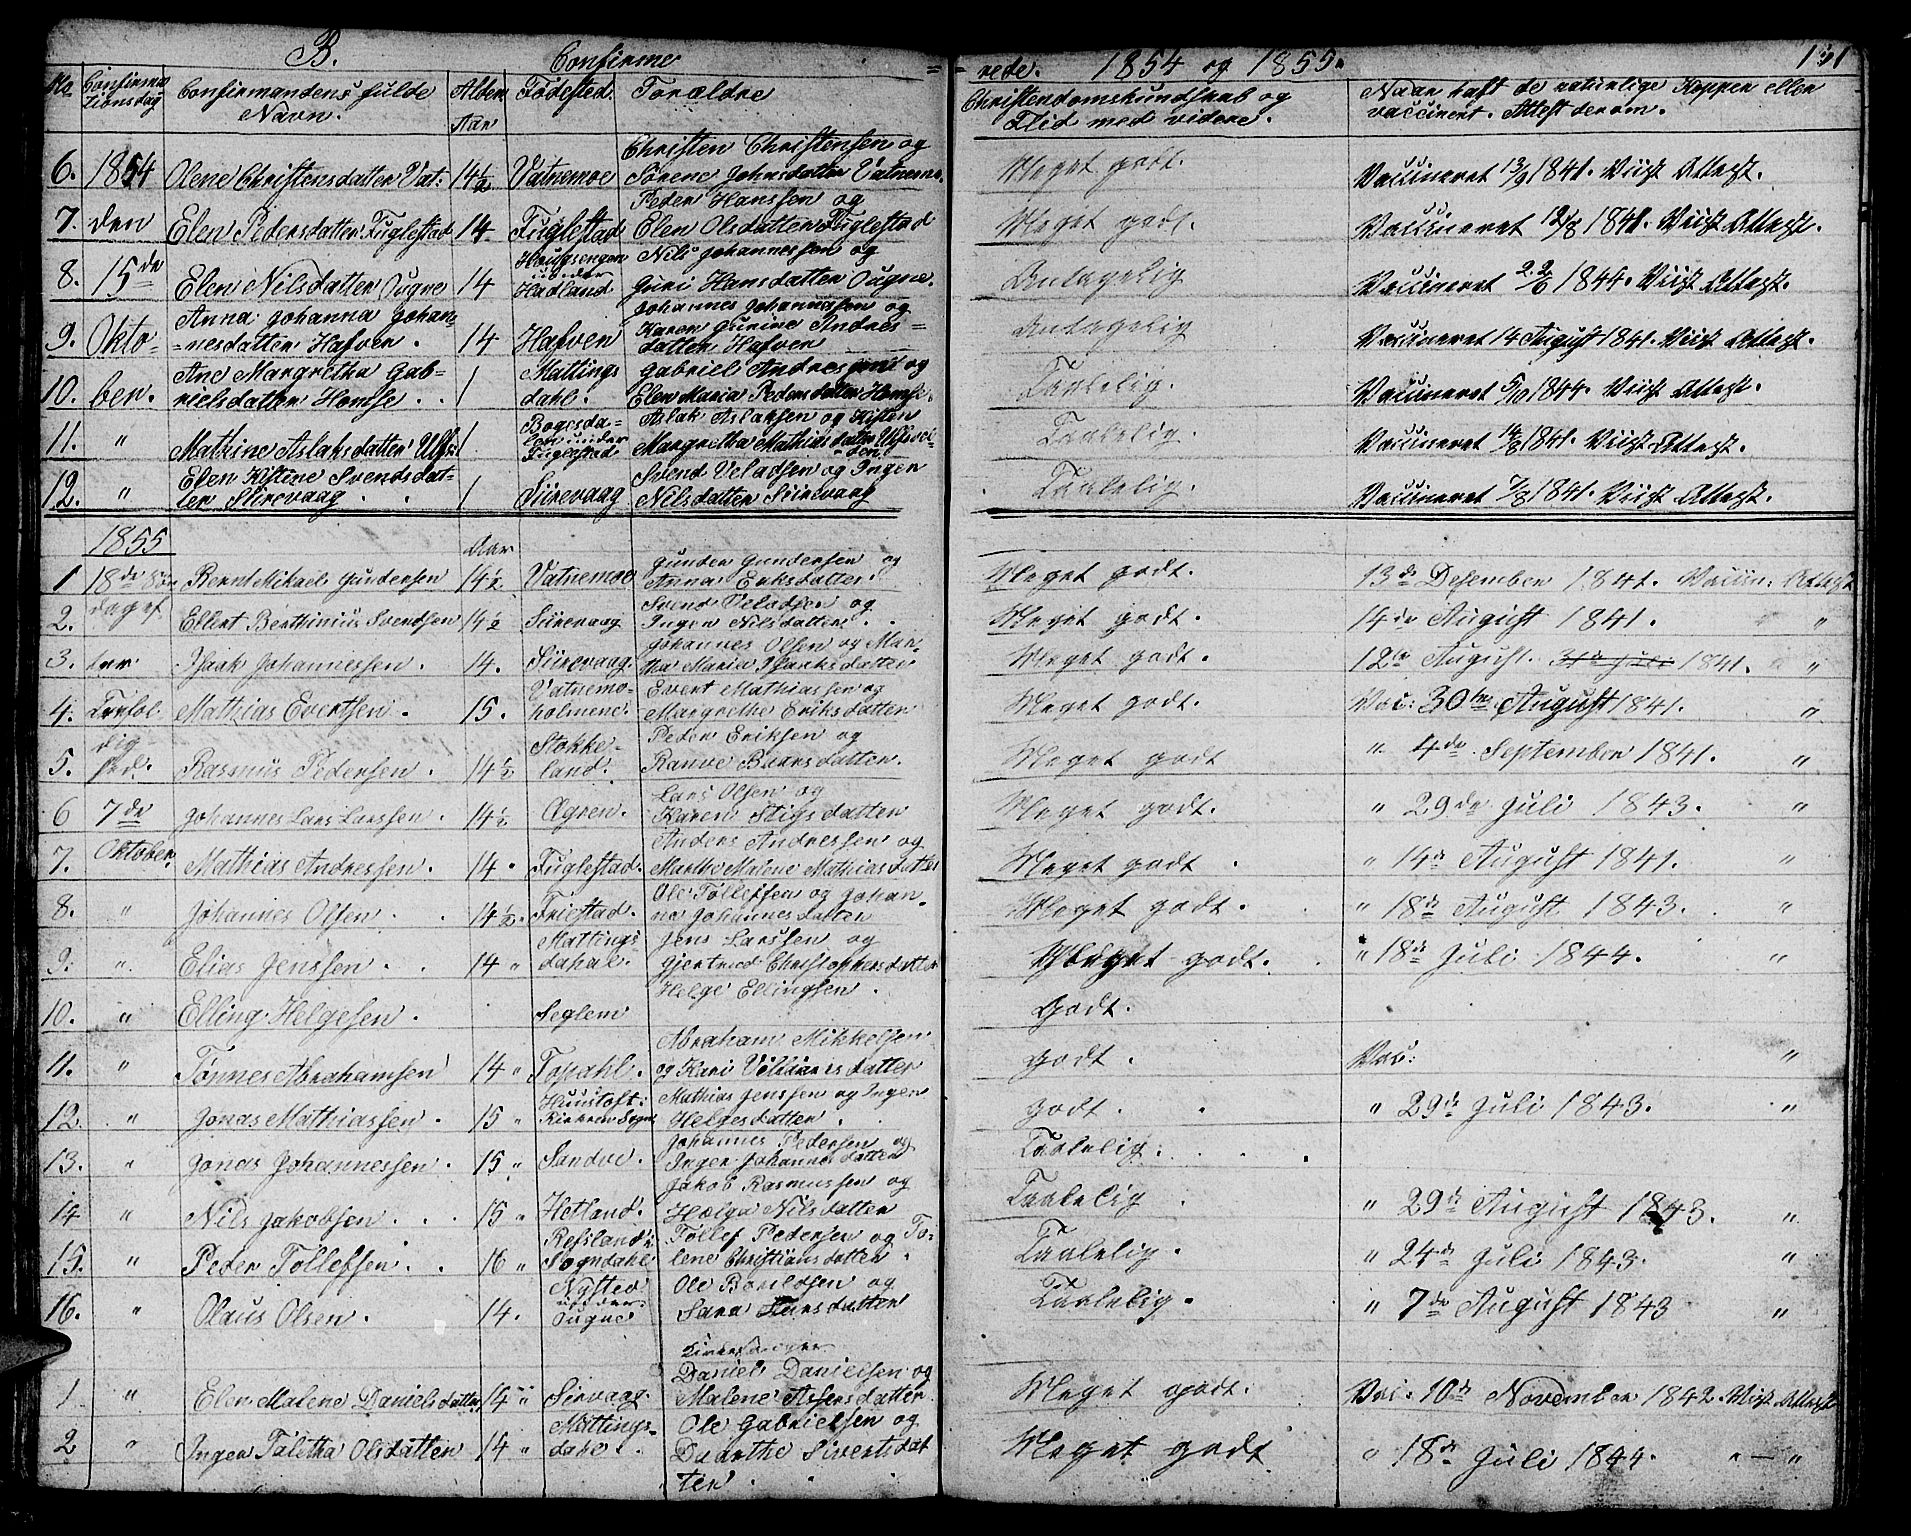 B. Confirme= =rede. 1854 og 1855. 131
No Confirmationsdag Confirmandens fulde Navn. Alder Aar Fødested. Forældre Christendomskundskab og Flid med videre. Naar haft de naturlige Kopper eller vaccineret. Attest derom.
6. 1854 Olene Christensdatter Vat: 14½ Vatnemoe Christen Christensen og Sørene Johnsdatter Vatnemo. Meget godt. Vaccineret 13/9 1841. Viist Attest.
7. den Elen Pedersdatter Fuglestad 14. Fuglestad Peder Hanssen og Elen Olsdatter Fuglestad Meget godt. Vaccineret 12/8 1841. Viist Attest.
8. 15de Elen Nilsdatter Ougne 14 Hougsengen under Hadland Nils Johannessen og Guri Hansdatter Ougne. Antagelig Vaccineret 1844. Viist Attest.
9. Okto- Anna Johanna Johan= =nesdatter Hafven. 14 Hafven Johannes Johannessen og Karen Gurine Andres= datter Hafven Antagelig Vaccineret 14 August 1841. Viist Attest.
10. ber. Ane Margretha Gab= rielsdatter Homse.. 1 Mattings dahl. Gabriel Andressen og Elen Maria Pedersdatter Homse. Taalelig. Vaccineret 5/10 1844. Viist Attest.
11. " Mathine Aslaksdatter Ulfs: 1 Bogesda- len under Fuglestad Aslak Aslaksen og Kisten Margretha Mathiasdatter Ulfsvei- den Taalelig. Vaccineret 14/8 1841. Viist Attest.
12. " Elen Kistine Svendsdat- ter Siirevaag.. 1 Siirevaag Svend Veladsen og Inger Nilsdatter Siirevaag Taalelig. Vaccineret 7/8 1841. Viist Attest.
1855 Aar
1 18de Søn Bernt Mikael Gundersen 14½ Vatnemoe Gunder Gundersen og Anna Eriksdatter. Meget godt. 13de Desember 1841. Vaccin: Attest
2. dag ef Ellert Berthinius Svendsen 14½ Siirevaag Svend Veladsen og Inger Nilsdatter. Meget godt. 14de August 1841. "
3. ter Isaak Johannessen. 14. Siirevaag Johannes Olsen og Mar- tha Maria Isaaksdatter Meget godt. 12te August. 31te Juli 1841. " "
4. Trefol Mathias Evertsen. 15. Vatnemo- holmene. Evert Mathiassen og Margrethe Eriksdatter Meget godt. Vac: 30te August 1841. "
5. dig hed. Rasmus Pedersen. 14½ Stokke- land. Peder Eriksen og Ranve Baarsdatter. Meget godt " 4de September 1841. "
6 7de Johannes Lars Larssen. 14½ Ægren. Lars Olsen og Karen Stigsdatter Meget godt. " 29de Juli 1843. "
7. Oktober. Mathias Andressen. 14. Fuglestad. Anders Andressen og Marthe Malene Mathiasdatter Meget godt. " 14de August 1841. "
8. " Johannes Olsen.. 14½. Friestad. Ole Tollefsen og Johan- ne Johannesdatter Meget godt. " 18de August 1843. "
9. " Elias Jenssen.. 14 " Mattings- dahal. Jens Larssen og Gjertrud Christophersdatter Meget godt. " 18de Juli 1844. "
10. " Elling Helgesen. Seglem Helge Ellingsen. Godt.
11. " Tønnes Abrahamsen 14 " Topdahl. Abraham Mikkelsen og Kari Villumsdatter godt. Vac: "
12. " Jonas Mathiassen. 15 " Huustoft: Mathias Jenssen og Inger Helgesdatter. godt. " 29de Juli 1843. "
13. " Jonas Johannessen. 15 " Sandve. Johannes Pedersen og Inger Johannesdatter Taalelig.
14 " Nils Jakobsen... 15 " Hetland. Jakob Rasmussen og Helga Nilsdatter Taalelig. " 29de August 1843. "
15. " Peder Tollefsen.. 16 " Refsland i Sogndahl Tollef Pedersen og To- lene Christiansdatter. Taalelig. " 24de Juli 1843. "
16. " Olaus Olsen. 14. Nysted under Ougne Ole Borildsen og Sara Larsdatter Taalelig. " 7de August 1843 "
1 " Elen Malene Danielsdatter 14 " Sirvaag. Kirkesanger Daniel Danielsen og Malene Assersdatter Meget godt. Vac. 10de November 1842. Viist Attest
2 " Inger Talitha Olsdatter 14 " Mattings- dahl. Ole Gabrielsen og Dorthe Sivertsdat ter. Meget godt " 18de Juli 1844. " — "